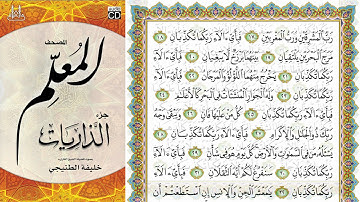 CD
المصحف
المعلم
جزء
الذاريات
خليفة الطنيجي
رَبُّ ٱلْمَشْرِقَيْنِ وَرَبُّ ٱلْمَغْرِبَيْنِ ١٧ فَبِأَىِّ ءَالَآءِ رَبِّكُمَا تُكَذِّبَانِ ١٨
مَرَجَ ٱلْبَحْرَيْنِ يَلْتَقِيَانِ ١٩ بَيْنَهُمَا بَرْزَخٌ لَّا يَبْغِيَانِ ٢٠ فَبِأَىِّ ءَالَآءِ
رَبِّكُمَا تُكَذِّبَانِ ٢١ يَخْرُجُ مِنْهُمَا ٱللُّؤْلُؤُ وَٱلْمَرْجَانُ ٢٢ فَبِأَىِّ ءَالَآءِ
رَبِّكُمَا تُكَذِّبَانِ ٢٣ وَلَهُ ٱلْجَوَارِ ٱلْمُنشَـَٔاتُ فِى ٱلْبَحْرِ كَٱلْأَعْلَـٰمِ ٢٤
فَبِأَىِّ ءَالَآءِ رَبِّكُمَا تُكَذِّبَانِ ٢٥ كُلُّ مَنْ عَلَيْهَا فَانٍ ٢٦ وَيَبْقَىٰ وَجْهُ
رَبِّكَ ذُو ٱلْجَلَـٰلِ وَٱلْإِكْرَامِ ٢٧ فَبِأَىِّ ءَالَآءِ رَبِّكُمَا تُكَذِّبَانِ ٢٨
يَسْـَٔلُهُۥ مَن فِى ٱلسَّمَـٰوَٰتِ وَٱلْأَرْضِ كُلَّ يَوْمٍ هُوَ فِى شَأْنٍ ٢٩ فَبِأَىِّ ءَالَآءِ
رَبِّكُمَا تُكَذِّبَانِ ٣٠ سَنَفْرُغُ لَكُمْ أَيُّهَ ٱلثَّقَلَانِ ٣١ فَبِأَىِّ ءَالَآءِ
رَبِّكُمَا تُكَذِّبَانِ ٣٢ يَـٰمَعْشَرَ ٱلْجِنِّ وَٱلْإِنسِ إِنِ ٱسْتَطَعْتُمْ أَن